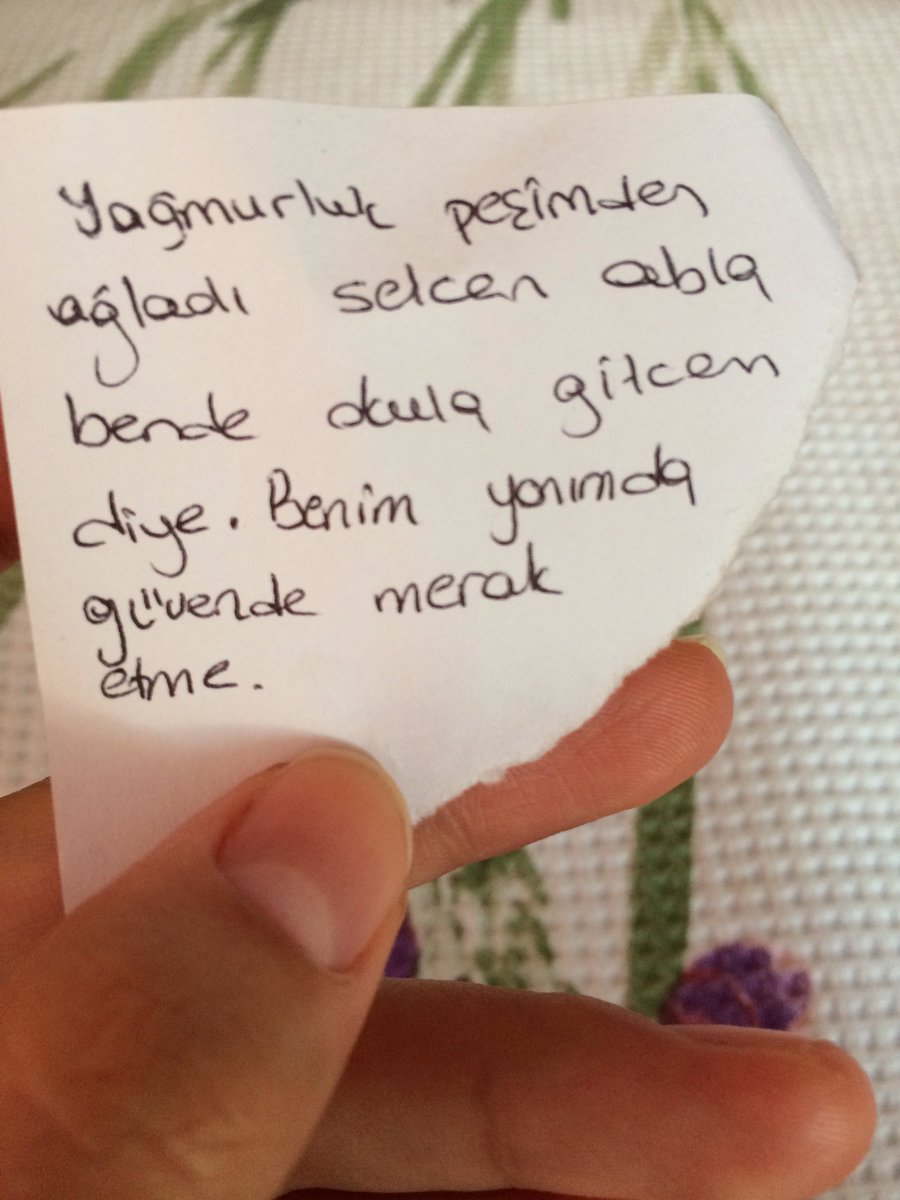 Yağmurluk peşimden
ağladı selcen abla
bende okula gitcem
diye. Benim yanımda
güvende merak
etme.